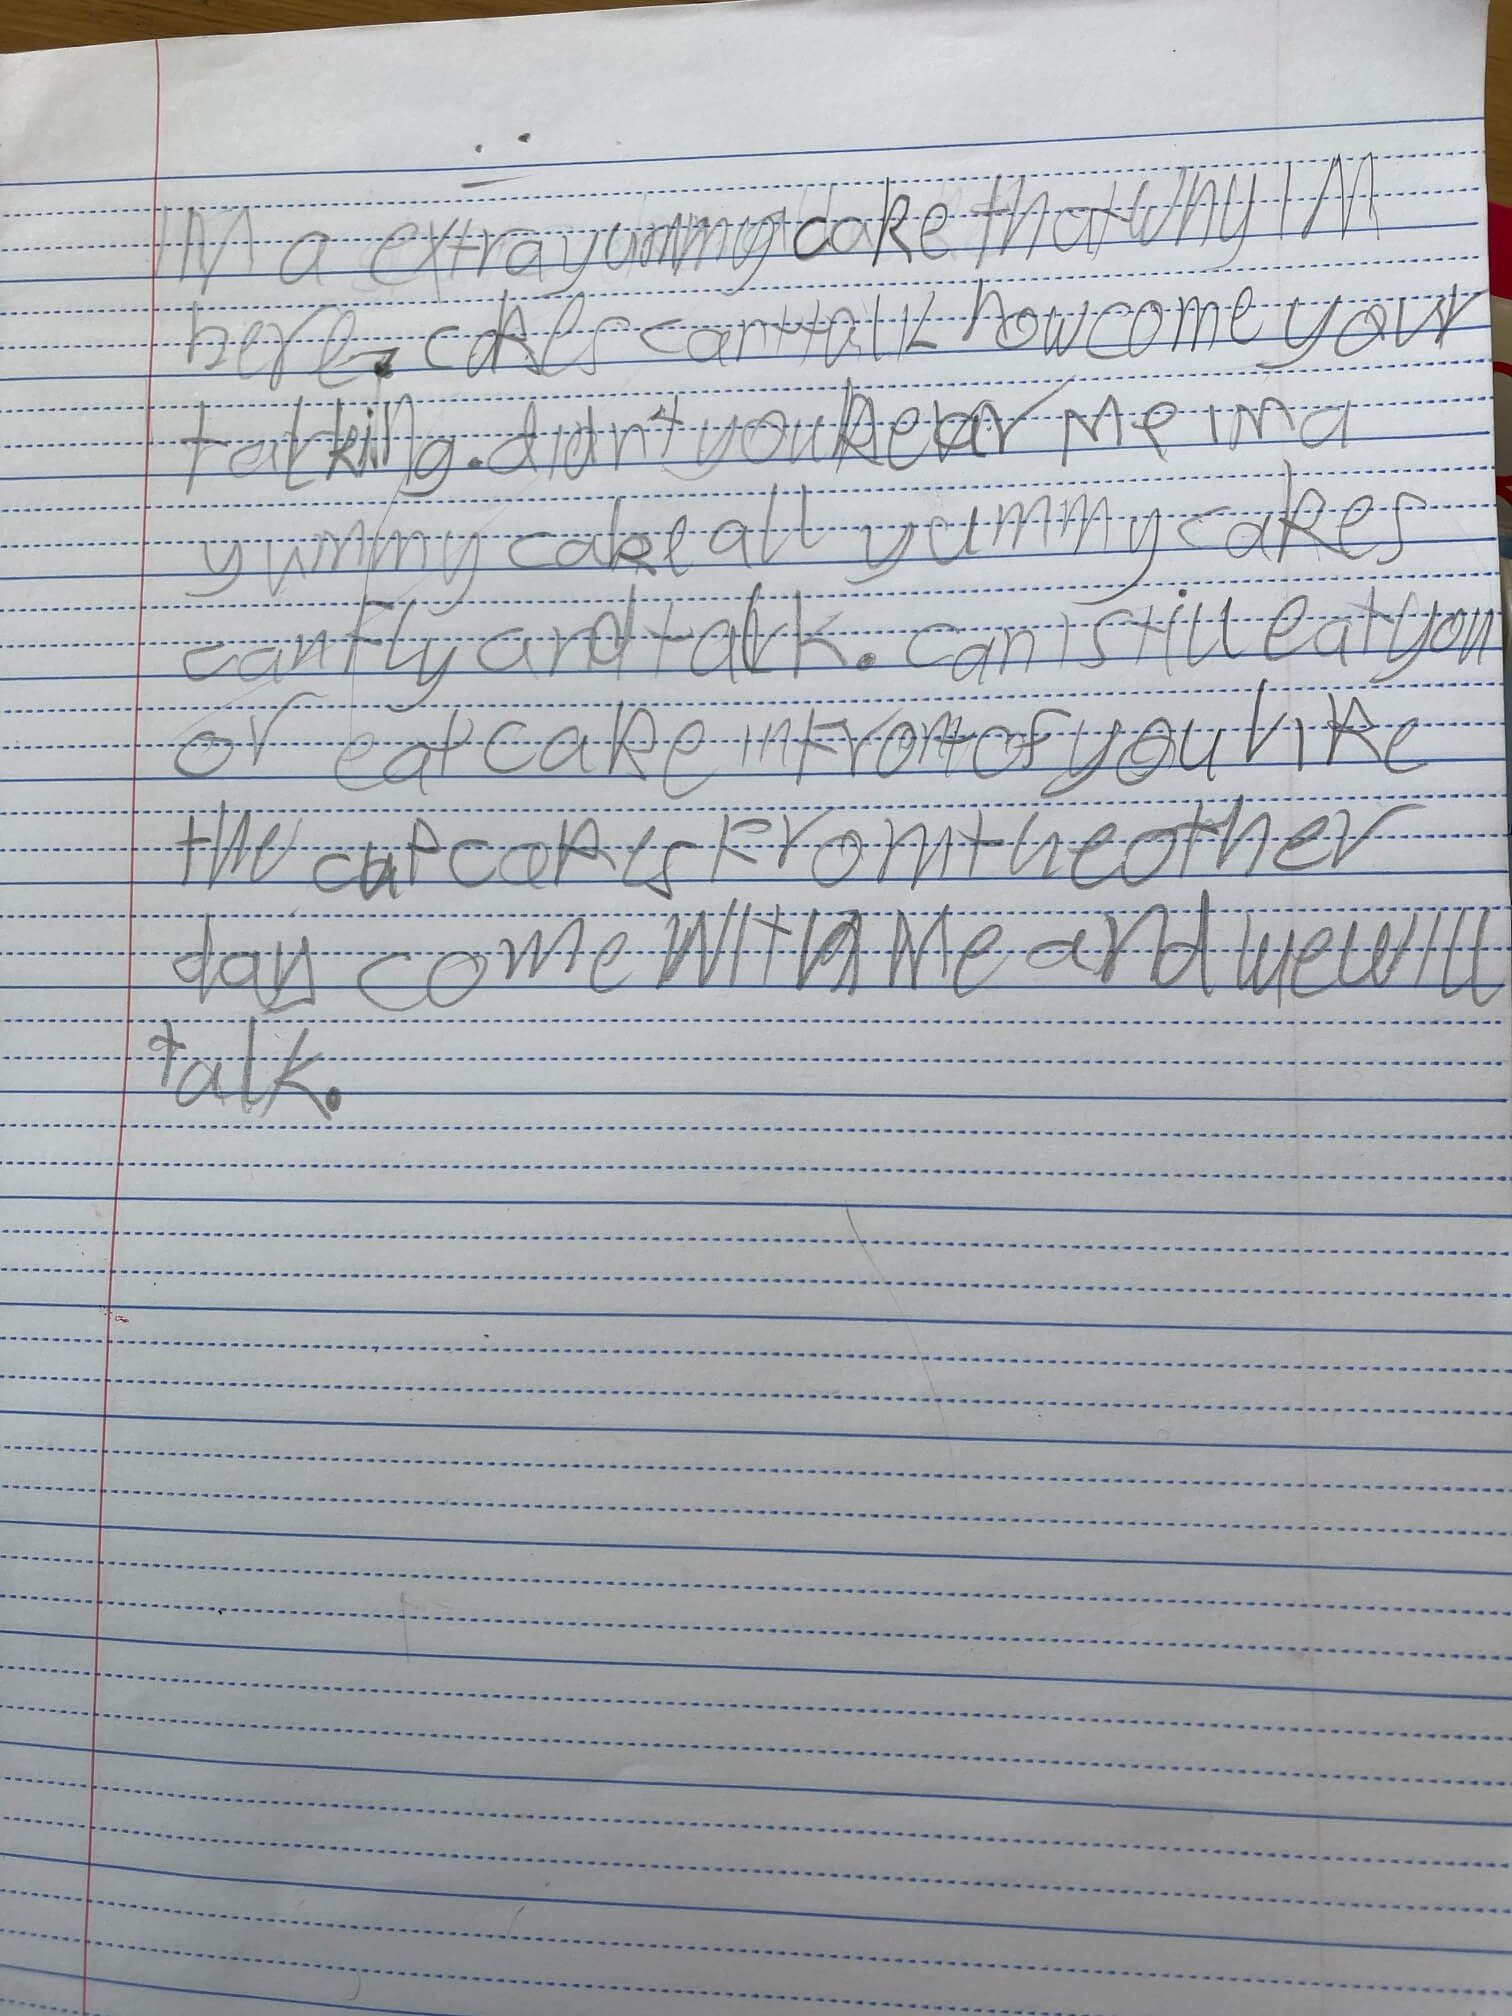 IM a extra yummy cake that why IM
here. cakes cant talk how come your
talking. didn't you hear Me IM a
yummy cake all yummy cakes
can fly and talk. can I still eat you
or eat cake in front of you like
the cupcakes from the other
day come with Me and we will
talk.